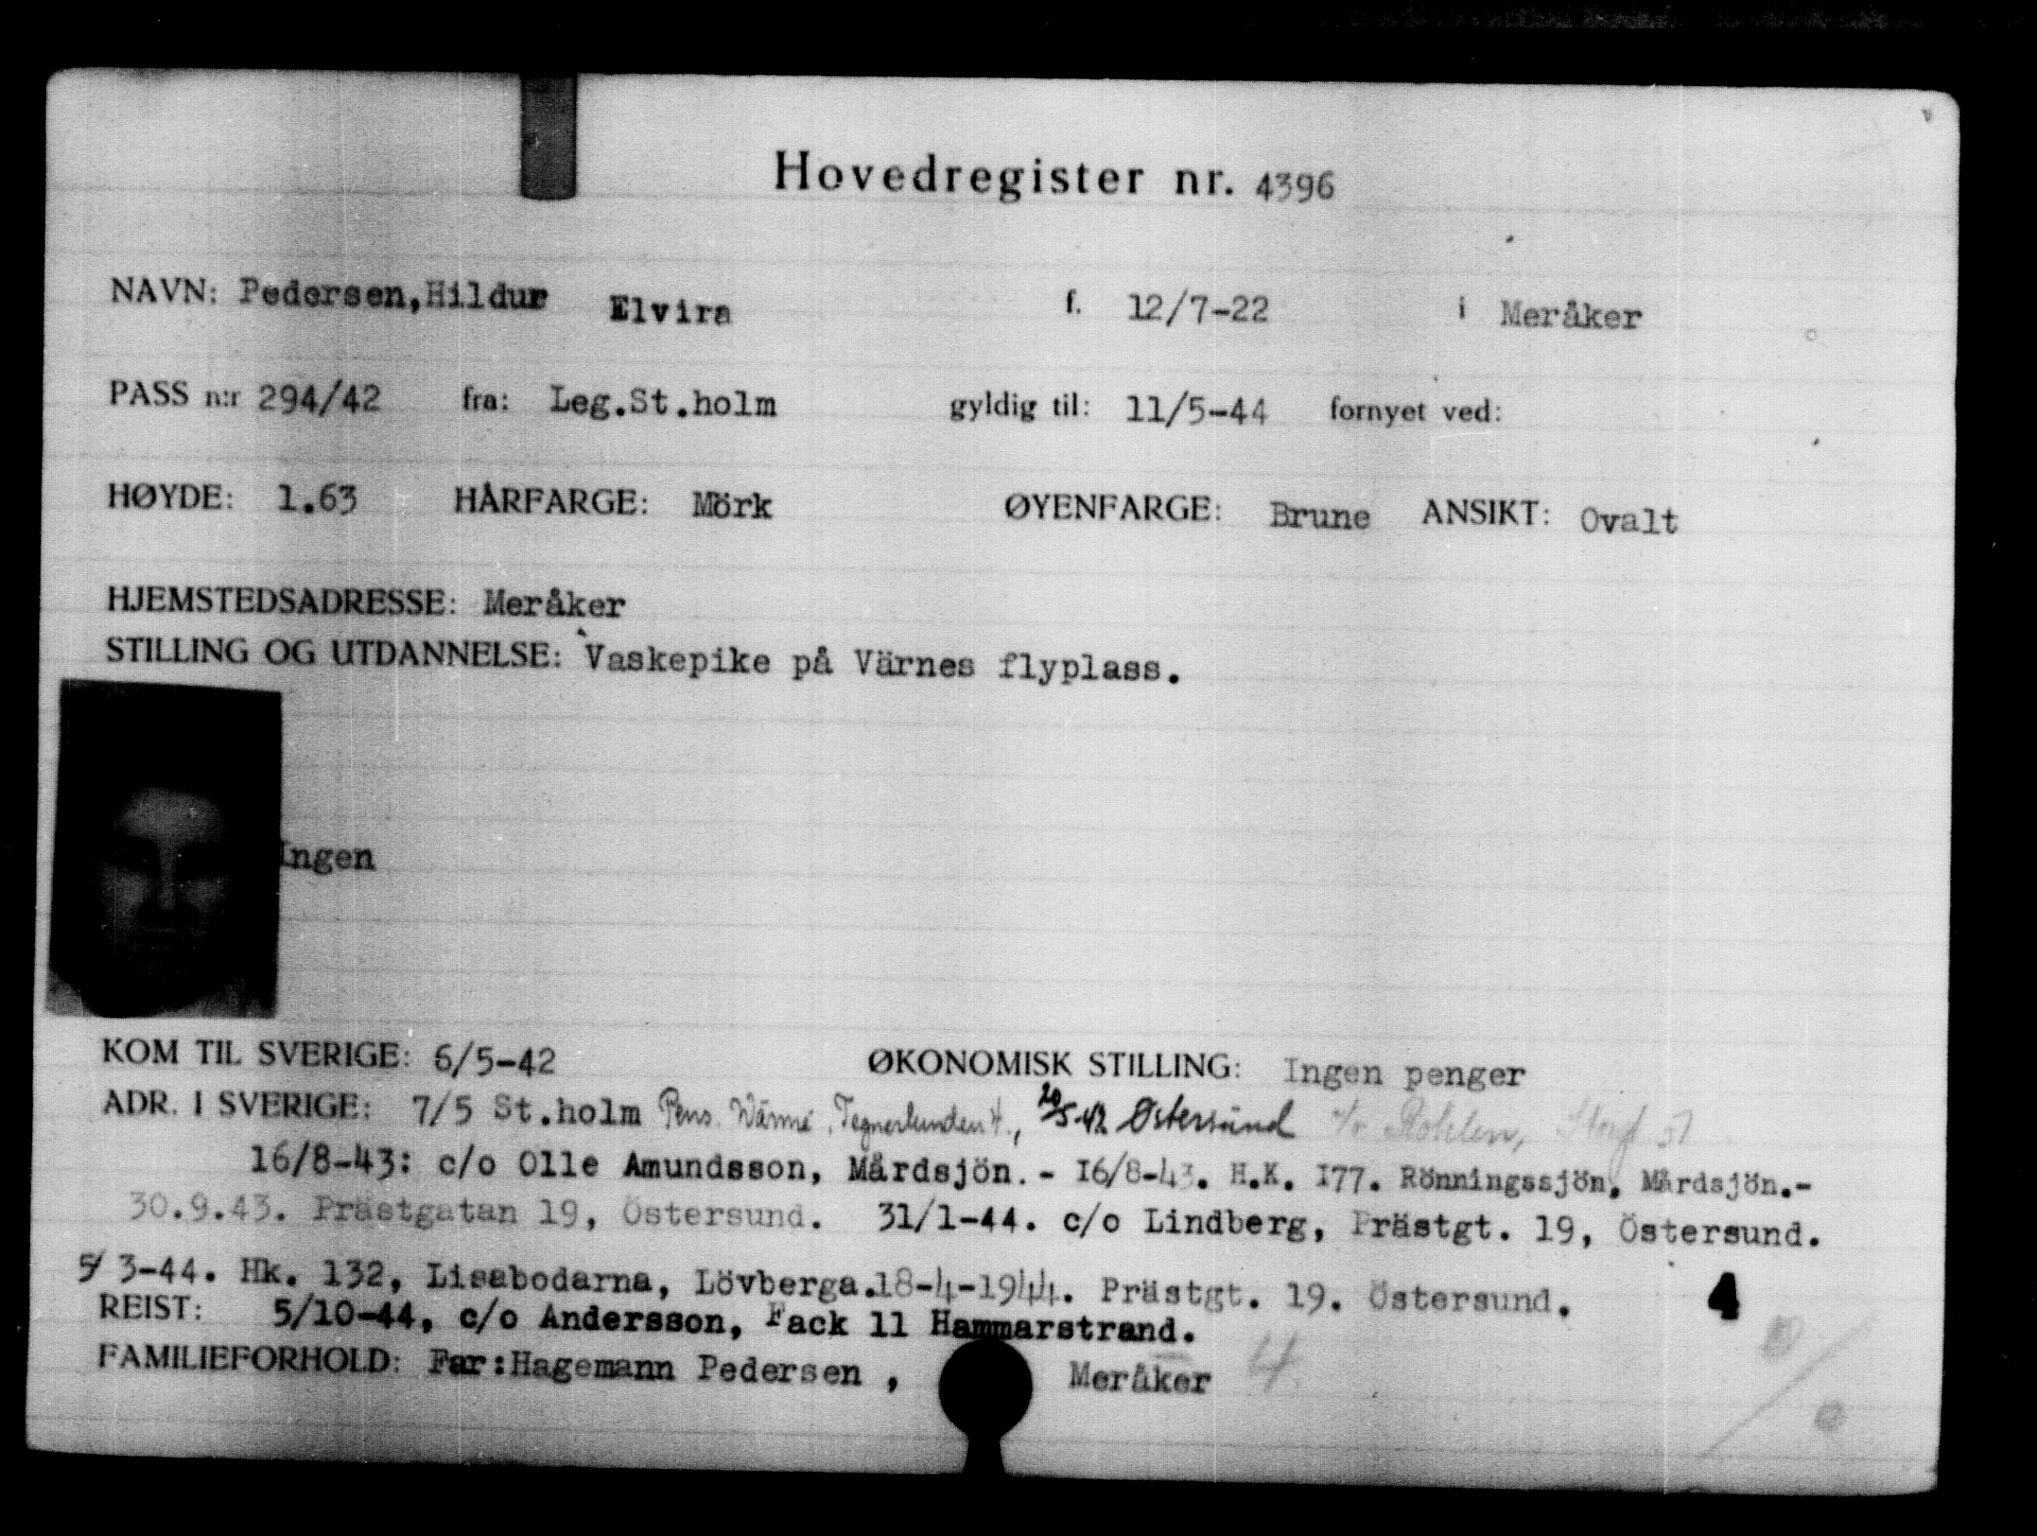 Hovedregister nr. 4396
NAVN: Pedersen,Hildur Elvira f. 12/7-22 i Meråker
PASS n:r 294/42 fra: Leg.St.holm gyldig til: 11/5-44 fornyet ved:
HØYDE: 1.63 HÅRFARGE: Mörk ØYENFARGE: Brune ANSIKT: Ovalt
HJEMSTEDSADRESSE: Meråker
STILLING OG UTDANNELSE: Vaskepike på Värnes flyplass.
Ingen
KOM TIL SVERIGE: 6/5-42 ØKONOMISK STILLING: Ingen penger
ADR. I SVERIGE: 7/5 St.holm Pens. Wärme, Tegnerlunden 4., 20/5-42 Östersund
16/8-43: c/o Olle Amundsson, Mårdsjön. - 16/8-43. H.K. I77. Rönningssjön, Mårdsjön.-
30.9.43. Prästgatan 19, Östersund. 31/1-44. c/o Lindberg, Prästgt. 19, Östersund.
5/ 3-44. Hk. 132, Lisabodarna, Lövberga.18-4-1944. Prästgt. 19. Östersund. 4
REIST: 5/10-44, c/o Andersson, Fack 11 Hammarstrand.
FAMILIEFORHOLD: Far:Hagemann Pedersen , Meråker 4